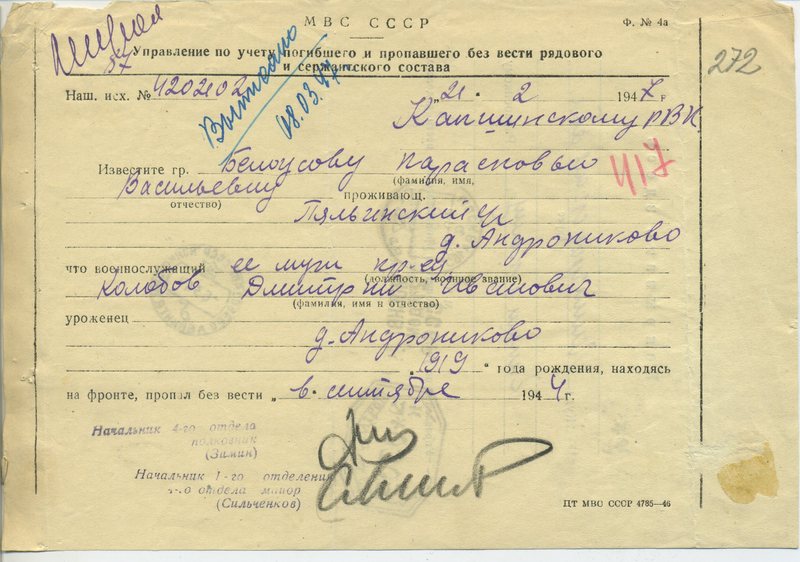 МВС СССР
Ф. № 4а
Управление по учету погибшего и пропавшего без вести рядового
и сержантского состава
57
272
Наш. исх. № 420202
„21 · 2 1947 г
Выписано
18.03.47г
Капшинскому РВК
Известите гр. Белоусову Парасковью
(фамилия, имя,
417
Васильевну проживающ.
отчество)
Пяльинский
д. Андрониково
что военнослужащий ее муж кр-ец
(должность, военное звание)
Колобов Дмитрий Иванович
(фамилия, имя и отчество)
уроженец
д. Андрониково
„1919 " года рождения, находясь
на фронте, пропал без вести „ в сентябре 1944 г.
Начальник 4-го отдела
полковник
(Зимин)
Начальник 1-го отделения
4-го отдела майор
(Сильченков)
ЦТ МВС СССР 4785—46